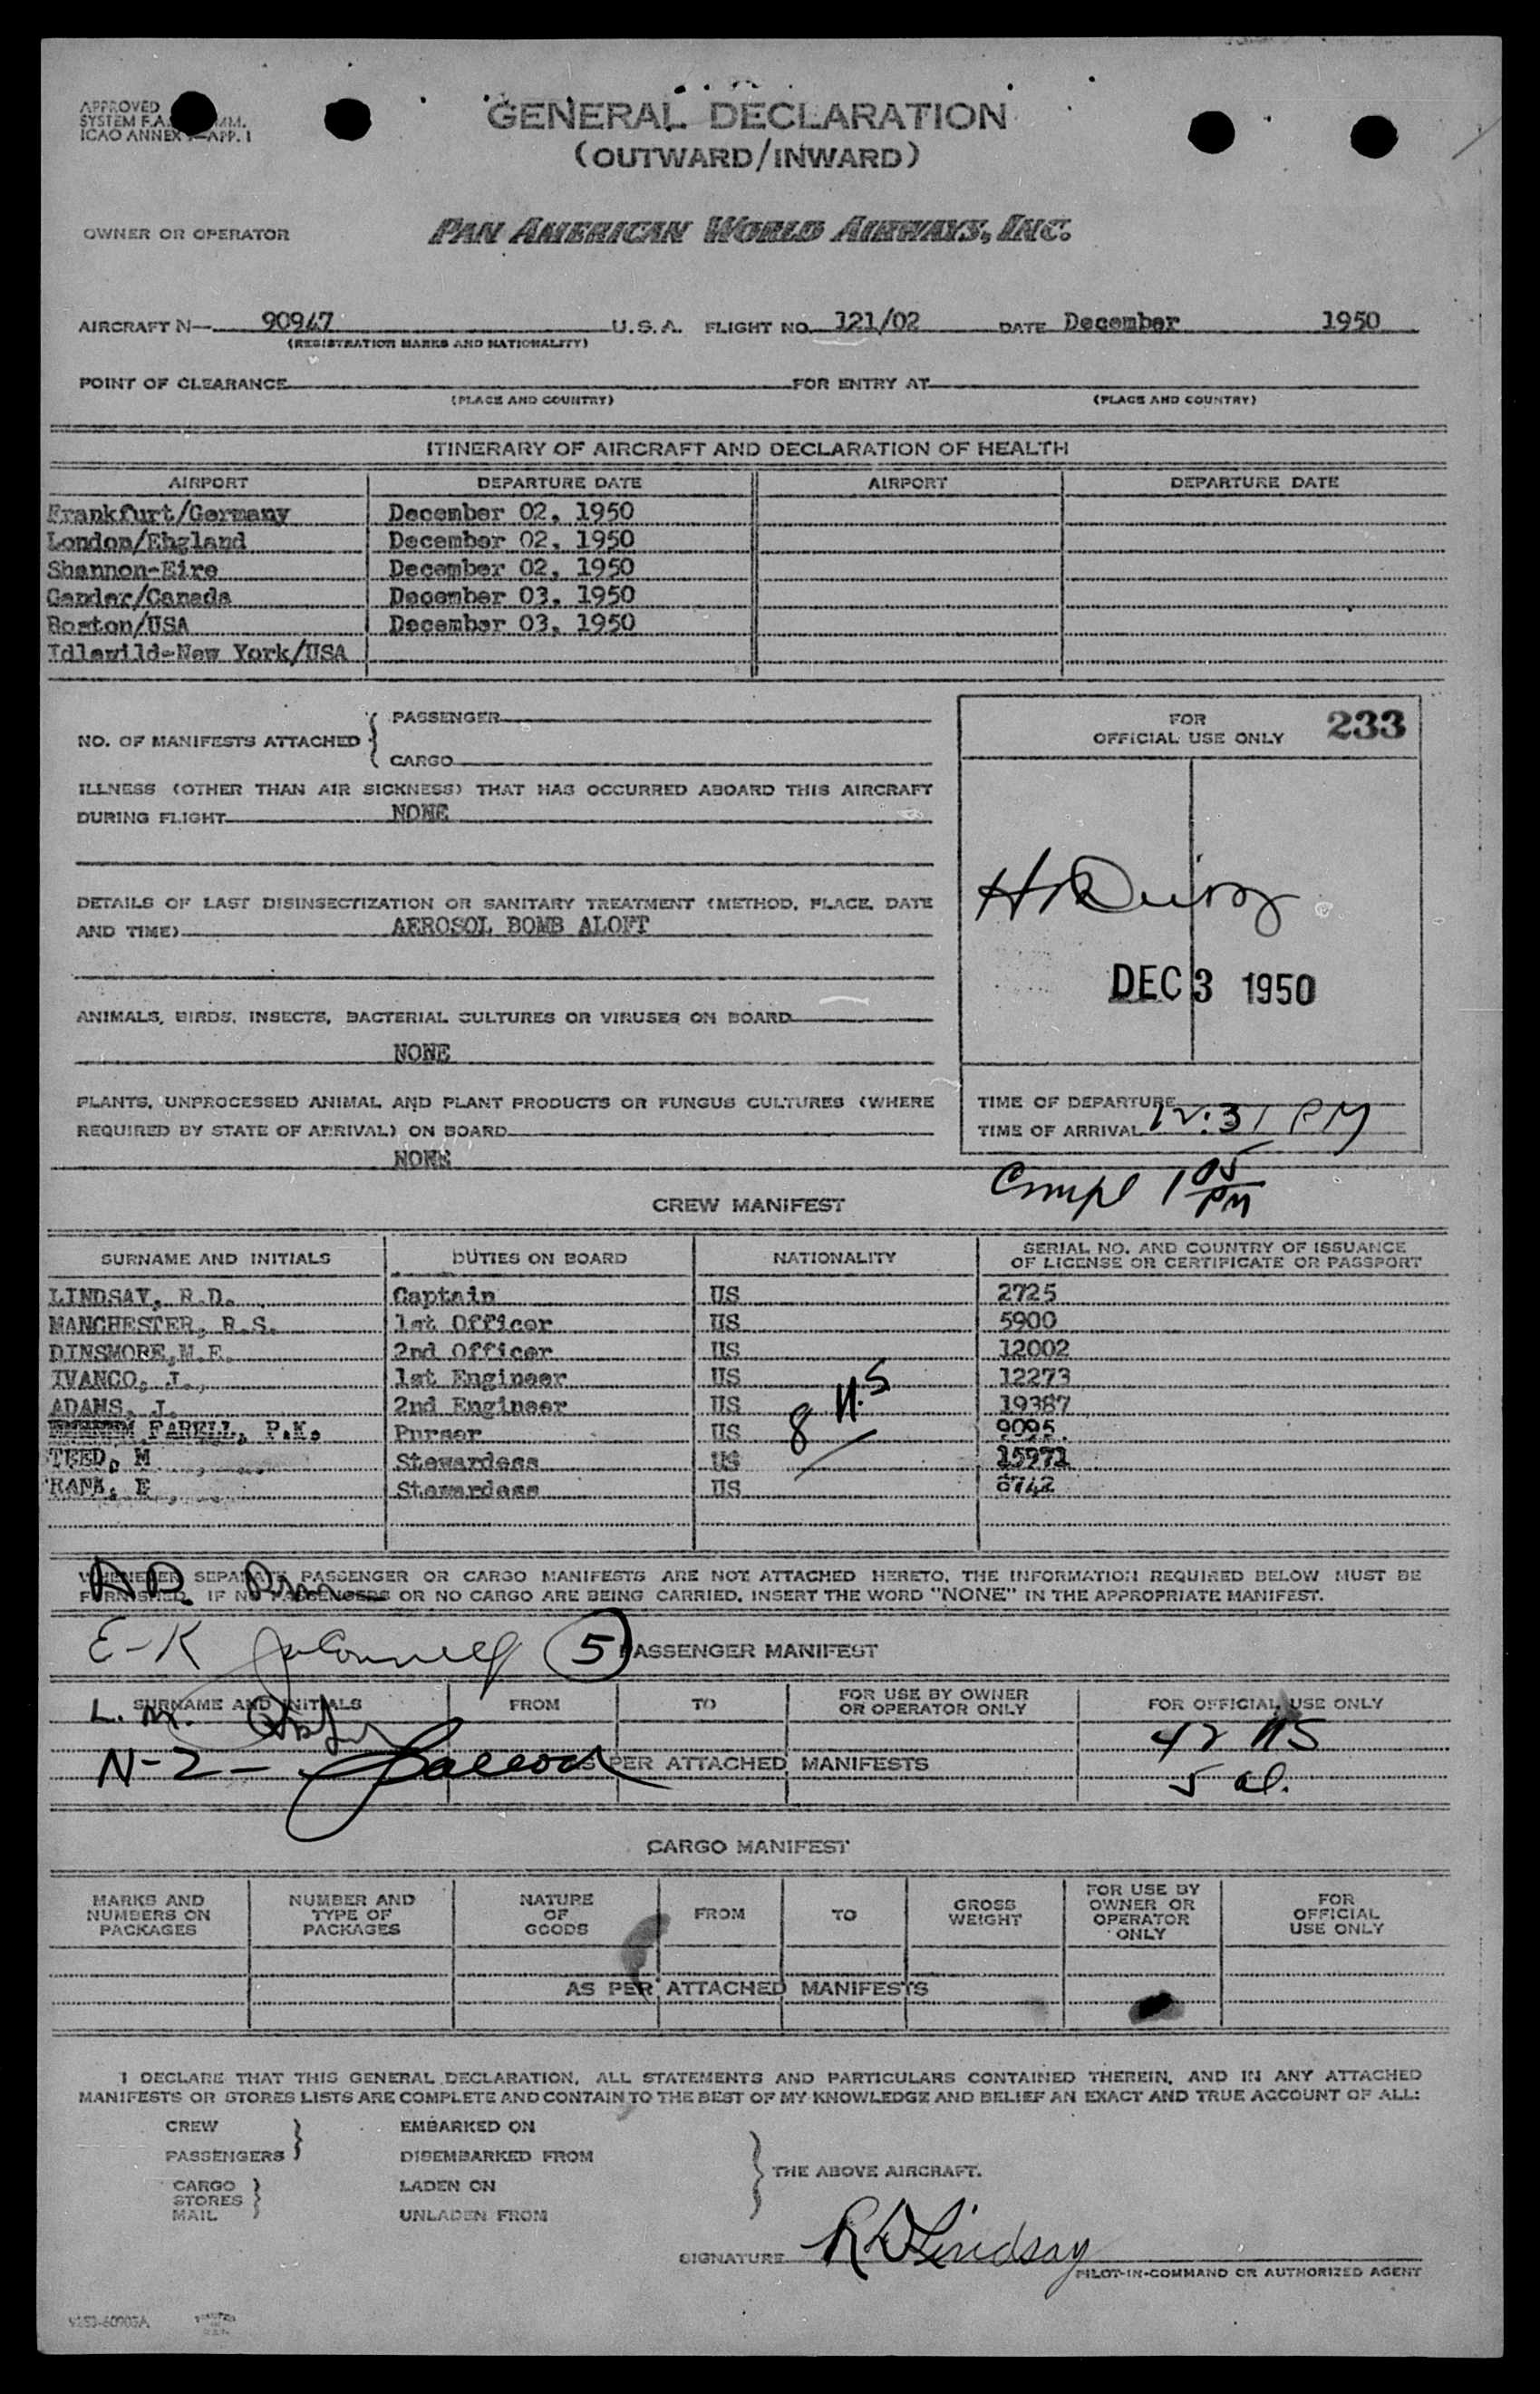 APPROVED
SYSTEM F.A.
ICAO ANNEX APP. 1
GENERAL DECLARATION
(OUTWARD/INWARD)
OWNER OR OPERATOR PAN AMERICAN WORLD AIRWAYS, INC.
AIRCRAFT N— 90947 U.S.A. FLIGHT NO. 121/02 DATE December 1950
(REGISTRATION MARKS AND NATIONALITY)
POINT OF CLEARANCE FOR ENTRY AT
(PLACE AND COUNTRY) (PLACE AND COUNTRY)
ITINERARY OF AIRCRAFT AND DECLARATION OF HEALTH
AIRPORT DEPARTURE DATE AIRPORT DEPARTURE DATE
Frankfurt/Germany December 02, 1950
London/Ehgland December 02, 1950
Shannon-Eire December 02, 1950
Gander/Canada December 03, 1950
Boston/USA December 03, 1950
Idlewild-New York/USA
NO. OF MANIFESTS ATTACHED { PASSENGER
CARGO
FOR
OFFICIAL USE ONLY 233
ILLNESS (OTHER THAN AIR SICKNESS) THAT HAS OCCURRED ABOARD THIS AIRCRAFT
DURING FLIGHT NONE
DETAILS OF LAST DISINSECTIZATION OR SANITARY TREATMENT (METHOD, PLACE, DATE
AND TIME) AEROSOL BOMB ALOFT
DEC 3 1950
ANIMALS, BIRDS, INSECTS, BACTERIAL CULTURES OR VIRUSES ON BOARD
NONE
PLANTS, UNPROCESSED ANIMAL AND PLANT PRODUCTS OR FUNGUS CULTURES (WHERE
REQUIRED BY STATE OF ARRIVAL) ON BOARD
NONE
TIME OF DEPARTURE
TIME OF ARRIVAL 12:31 PM
Compl 1 05 PM
CREW MANIFEST
SURNAME AND INITIALS DUTIES ON BOARD NATIONALITY SERIAL NO. AND COUNTRY OF ISSUANCE
OF LICENSE OR CERTIFICATE OR PASSPORT
LINDSAY, R.D. Captain US 2725
MANCHESTER, R.S. 1st Officer US 5900
DINSMORE,M.E. 2nd Officer US 12002
IVANCO, J. 1st Engineer US 12273
ADAMS, J. 2nd Engineer US 19387
FARELL, P.K. Purser US 9095
TEED, M Stewardess US 15971
KANE, E Stewardess US 8742
8 U.S
WHENEVER SEPARATE PASSENGER OR CARGO MANIFESTS ARE NOT ATTACHED HERETO, THE INFORMATION REQUIRED BELOW MUST BE
FURNISHED. IF NO PASSENGERS OR NO CARGO ARE BEING CARRIED, INSERT THE WORD "NONE" IN THE APPROPRIATE MANIFEST.
E-K 5 PASSENGER MANIFEST
SURNAME AND INITIALS FROM TO FOR USE BY OWNER
OR OPERATOR ONLY FOR OFFICIAL USE ONLY
L. M. 42 US
N-Z - AS PER ATTACHED MANIFESTS
5 al.
CARGO MANIFEST
MARKS AND
NUMBERS ON
PACKAGES
NUMBER AND
TYPE OF
PACKAGES
NATURE
OF
GOODS
FROM
TO
GROSS
WEIGHT
FOR USE BY
OWNER OR
OPERATOR
ONLY
FOR
OFFICIAL
USE ONLY
AS PER ATTACHED MANIFESTS
I DECLARE THAT THIS GENERAL DECLARATION, ALL STATEMENTS AND PARTICULARS CONTAINED THEREIN, AND IN ANY ATTACHED
MANIFESTS OR STORES LISTS ARE COMPLETE AND CONTAIN TO THE BEST OF MY KNOWLEDGE AND BELIEF AN EXACT AND TRUE ACCOUNT OF ALL:
CREW EMBARKED ON
PASSENGERS DISEMBARKED FROM
THE ABOVE AIRCRAFT.
CARGO LADEN ON
STORES
MAIL UNLADEN FROM
SIGNATURE RD Lindsay
PILOT-IN-COMMAND OR AUTHORIZED AGENT